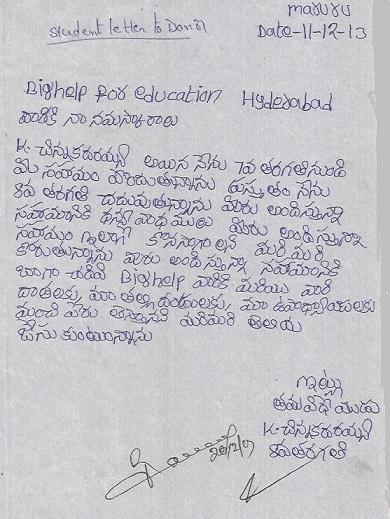 maruru
Student letter to Donor
Date-11-12-13
Bighelp for education Hyderabad
వారికి నా నమస్కారాలు
K-చిన్నకదురయ్య అయిన నేను 7వ తరగతినుండి
మీ సహాయం పొందుతున్నాను ప్రస్తుతం నేను
8వ తరగతి చదువుతున్నాను మీరు అందిస్తున్న
సహాయానికి ధన్యవాధములు మీరు అందిస్తున్న
సహాయం ఇలాగే కొనసాగాలని మరీ మరీ
కోరుతున్నాను మీరు అందిస్తున్న సహాయంనికి
బాగా చదివి Bighelp వారికి మరియు వారి
దాతలకు, మా తల్లి దండ్రులకు, మా ఉపాధ్యాయులకు
మంచి పేరు తెస్తానని మరిమరి తెలియ
చేసు కుంటున్నాను
ఇట్లు
తమవిధేయుడు
K-చిన్నకదురయ్య
8వతరగతి